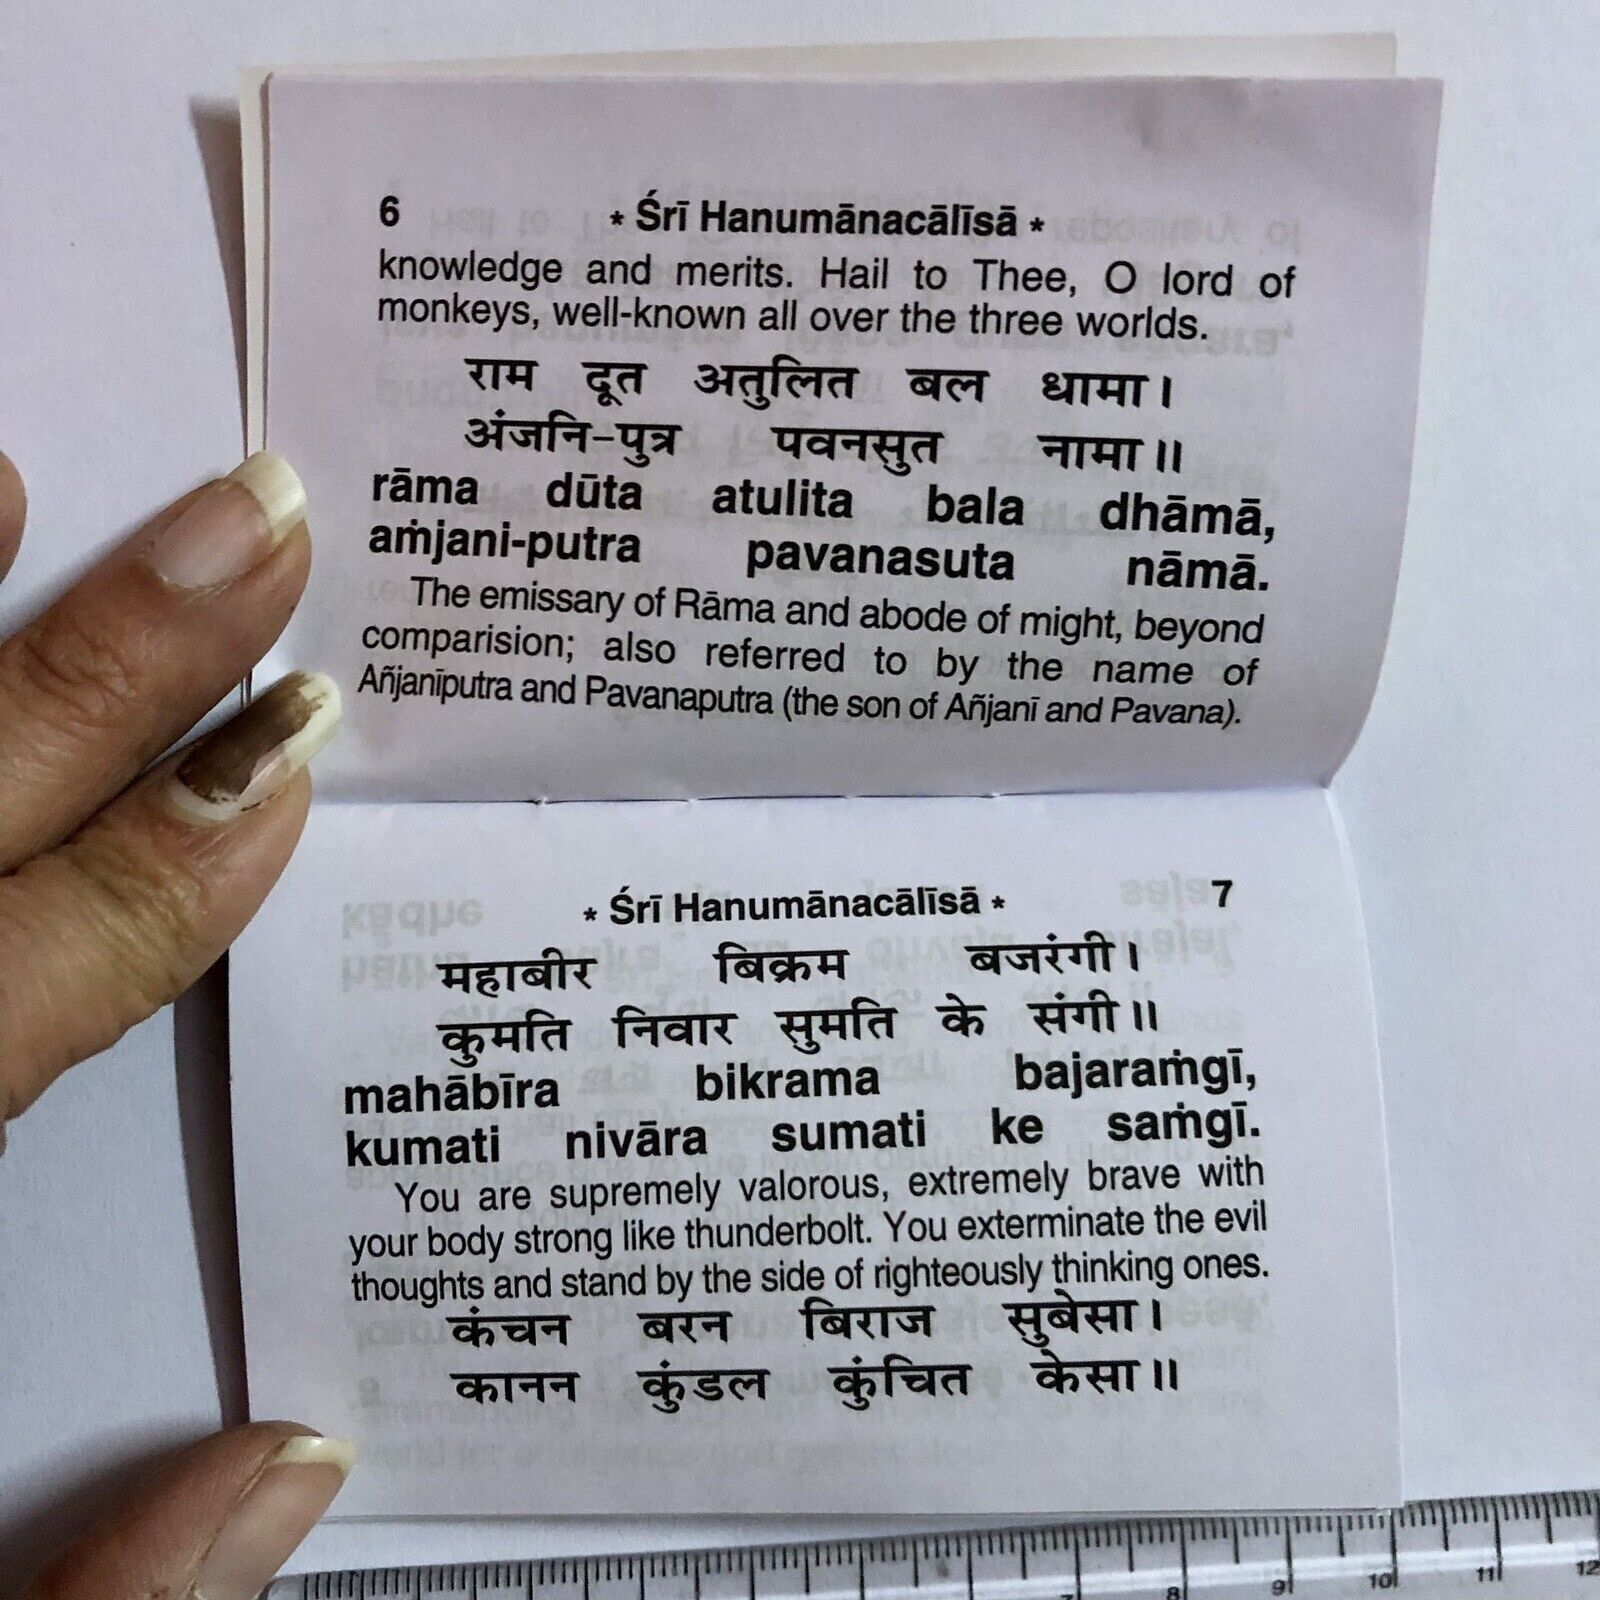 6 * Śrī Hanumānacālīsā *
knowledge and merits. Hail to Thee, O lord of
monkeys, well-known all over the three worlds.
राम दूत अतुलित बल धामा।
अंजनि-पुत्र पवनसुत नामा॥
rāma dūta atulita bala dhāmā,
aṁjani-putra pavanasuta nāmā.
The emissary of Rāma and abode of might, beyond
comparision; also referred to by the name of
Añjanīputra and Pavanaputra (the son of Añjanī and Pavana).
* Śrī Hanumānacālīsā * 7
महाबीर बिक्रम बजरंगी।
कुमति निवार सुमति के संगी॥
mahābīra bikrama bajaraṁgī,
kumati nivāra sumati ke saṁgī.
You are supremely valorous, extremely brave with
your body strong like thunderbolt. You exterminate the evil
thoughts and stand by the side of righteously thinking ones.
कंचन बरन बिराज सुबेसा।
कानन कुंडल कुंचित केसा॥
7 8 9 10 11 12